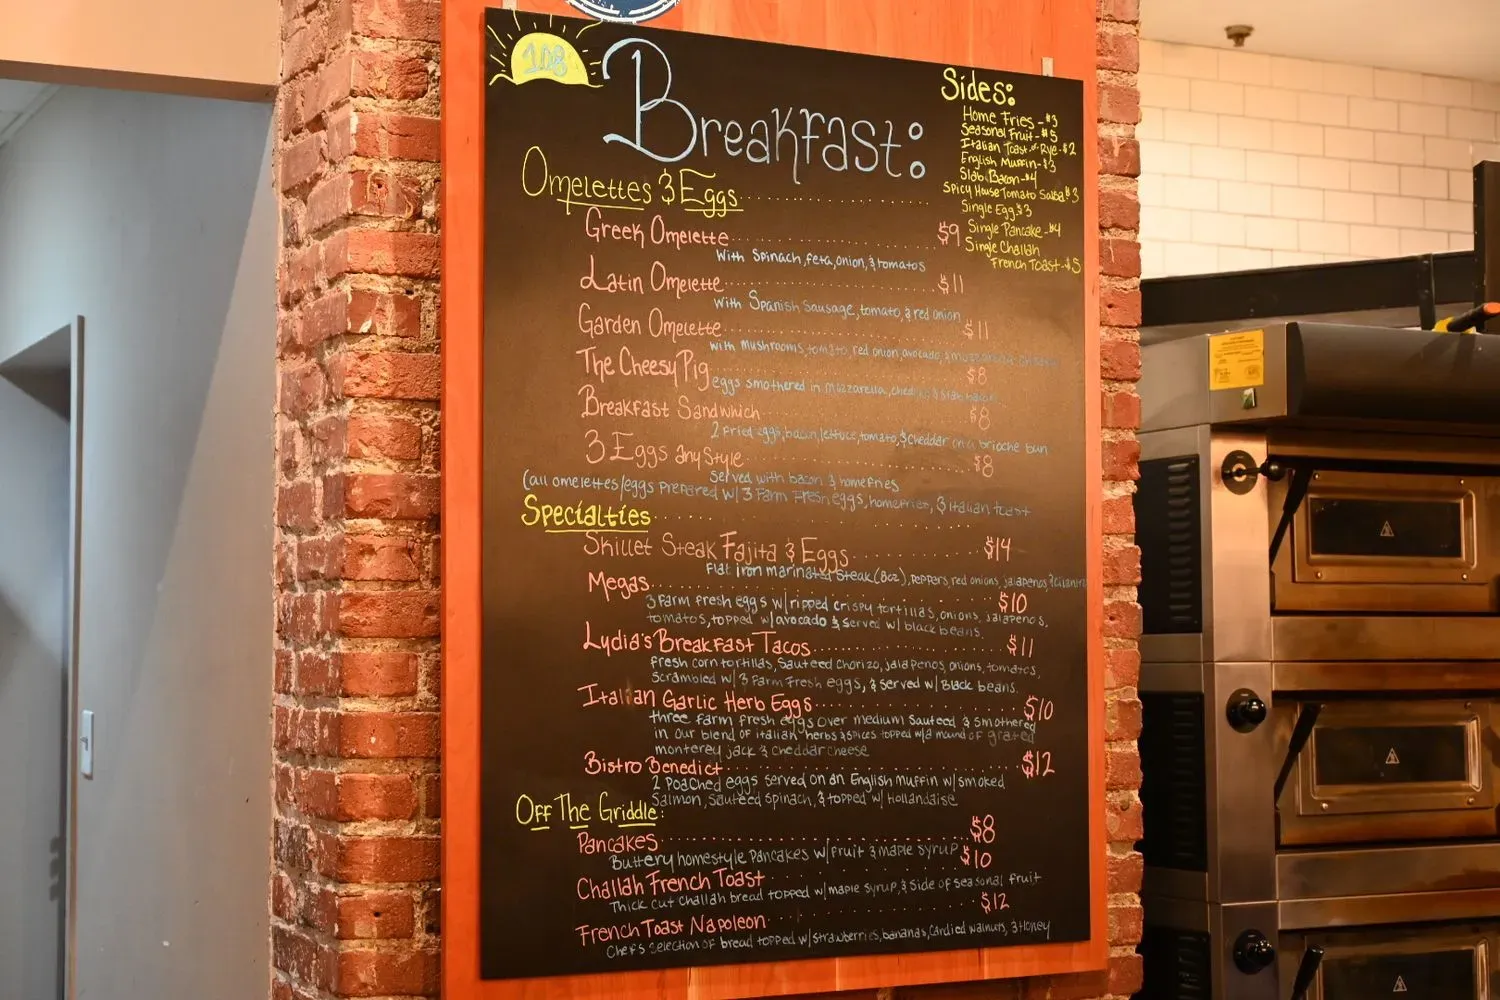 108
Breakfast:
Omelettes & Eggs
Greek Omelette $9
With Spinach, feta, onion, & tomatoes
Latin Omelette $11
with Spanish Sausage, tomato, & red onion
Garden Omelette $11
with mushrooms, tomato, red onion, avocado, &
The Cheesy Pig $8
eggs smothered in mozzarella, & slab bacon
Breakfast Sandwhich $8
2 fried eggs, bacon, lettuce, tomato, & cheddar on a brioche bun
3 Eggs any Style $8
Served with bacon & homefries
(all omelettes/eggs Prepared w/ 3 Farm Fresh eggs, homefries, & italian toast
Specialties
Skillet Steak Fajita & Eggs $14
Flat iron marinated steak (8oz), peppers, red onions, jalapenos & cilantro
Megas $10
3 farm fresh eggs w/ripped crispy tortillas, onions, jalapenos,
tomatoes, topped w/avocado & served w/ black beans.
Lydia's Breakfast Tacos $11
fresh corn tortillas, Sauteed Chorizo, jalapenos, onions, tomatoes,
Scrambled w/ 3 Farm Fresh eggs, & served w/ Black beans.
Italian Garlic Herb Eggs $10
three farm fresh eggs over medium Sauteed & smothered
in our blend of italian herbs & spices topped w/a mound of grated
monterey jack & cheddar cheese
Bistro Benedict $12
2 Poached eggs served on an English muffin w/smoked
Salmon, Sauteed Spinach, & topped w/ Hollandaise
Off The Griddle:
Pancakes $8
Buttery homestyle Pancakes w/fruit & maple syrup
Challah French Toast $10
Thick cut challah bread topped w/maple syrup, & Side of seasonal fruit
French Toast Napoleon $12
Chef's Selection of bread topped w/strawberries, bananas, Candied walnuts, & Honey
Sides:
Home Fries - $3
Seasonal Fruit - $5
Italian Toast or Rye - $2
English Muffin - $3
Slab Bacon - $4
Spicy House Tomato Salsa $3
Single Egg $3
Single Pancake - $4
Single Challah
French Toast - $5